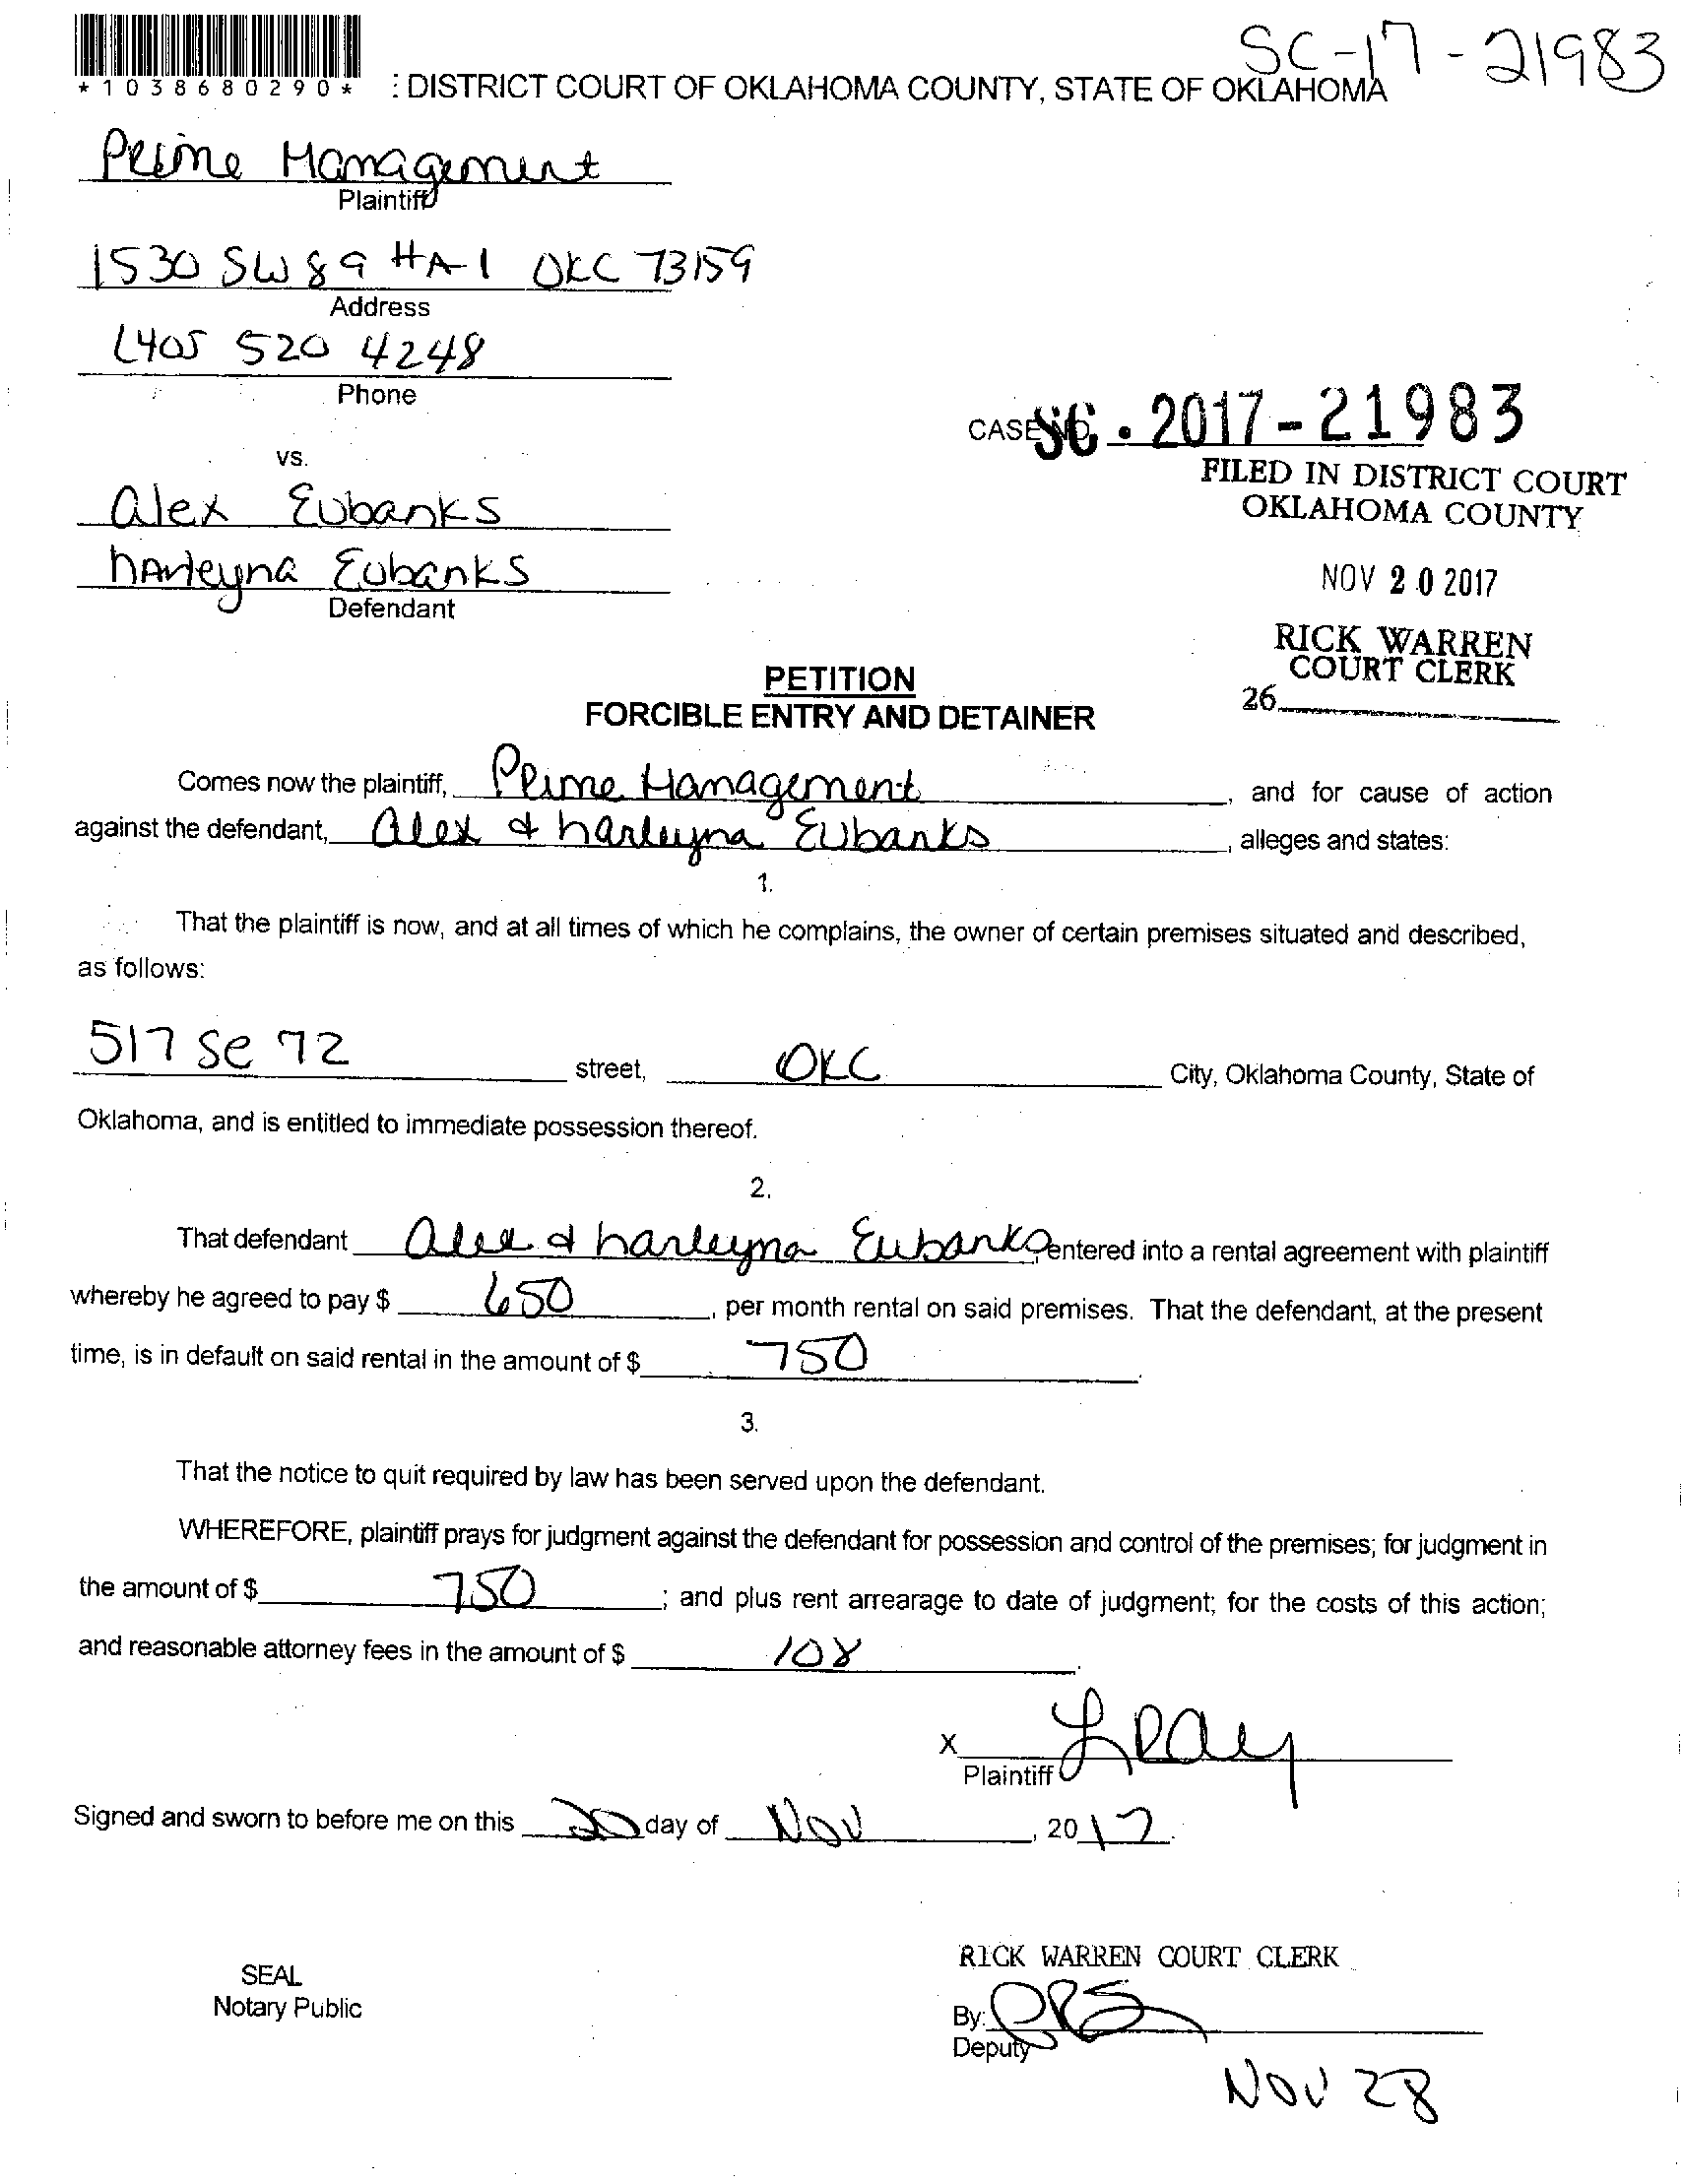 SC-17-21983
*1038680290*
: DISTRICT COURT OF OKLAHOMA COUNTY, STATE OF OKLAHOMA
Prime Management
Plaintiff
1530 SW 89 #A-1 OKC 73159
Address
405 520 4248
Phone
CASE NO. SC. 2017-21983
FILED IN DISTRICT COURT
OKLAHOMA COUNTY
vs.
Alex Eubanks
harleyna Eubanks
Defendant
NOV 20 2017
RICK WARREN
COURT CLERK
26
PETITION
FORCIBLE ENTRY AND DETAINER
Comes now the plaintiff, Prime Management, and for cause of action
against the defendant, Alex & harleyna Eubanks, alleges and states:
1.
That the plaintiff is now, and at all times of which he complains, the owner of certain premises situated and described,
as follows:
517 SE 72 street, OKC City, Oklahoma County, State of
Oklahoma, and is entitled to immediate possession thereof.
2.
That defendant Alex & harleyna Eubanks, entered into a rental agreement with plaintiff
whereby he agreed to pay $ 650, per month rental on said premises. That the defendant, at the present
time, is in default on said rental in the amount of $ 750.
3.
That the notice to quit required by law has been served upon the defendant.
WHEREFORE, plaintiff prays for judgment against the defendant for possession and control of the premises; for judgment in
the amount of $ 750; and plus rent arrearage to date of judgment; for the costs of this action;
and reasonable attorney fees in the amount of $ 108.
X
Plaintiff
Signed and sworn to before me on this 20 day of Nov, 2017.
RICK WARREN COURT CLERK
SEAL
Notary Public
By:
Deputy
NOV 28